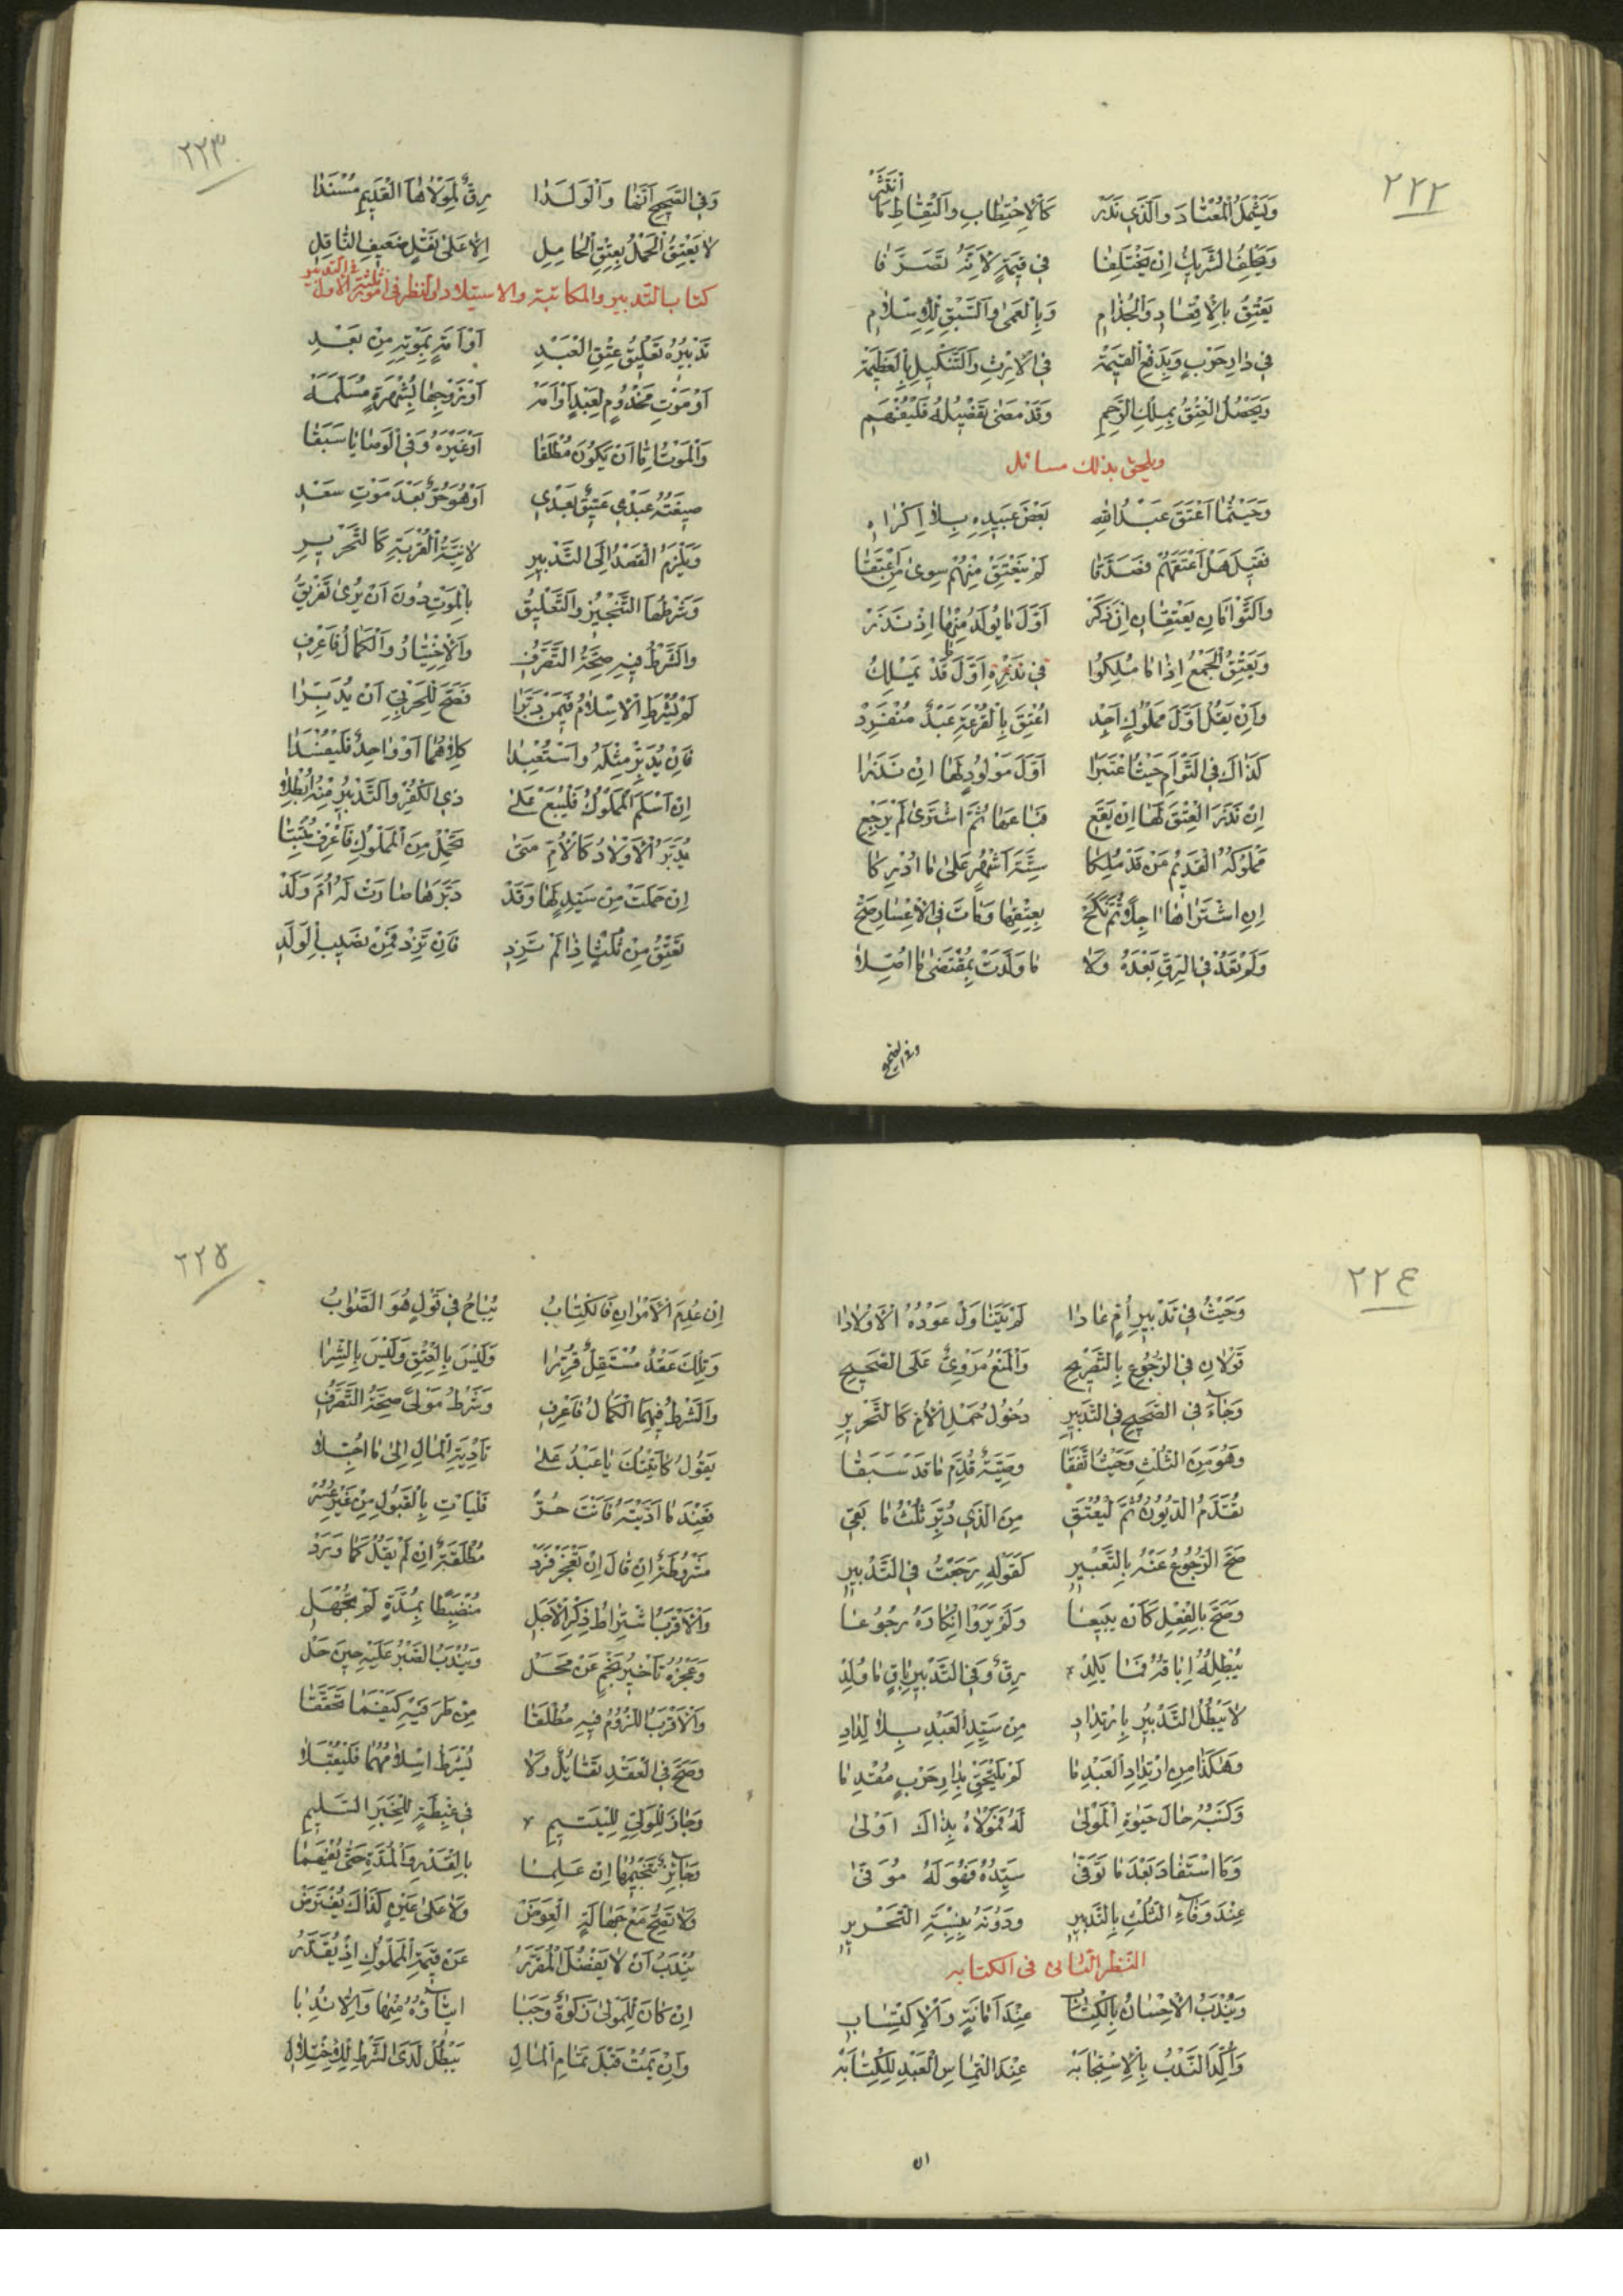 ٢٢٢
وَيَشْمَلُ الْمُعْتَادَ وَالَّذِي نَدَرْ كَالْاِحْتِطَابِ وَالْتِقَاطِ مَا انْتَثَرْ
وَيَحْلِفُ الشَّرِيكُ اِنْ يَخْتَلِفَا فِي قِيمَةٍ لِاَنَّهُ تَصَرَّفَا
يَعْتِقُ بِالْاِقْعَادِ وَالْجُذَامِ وَبِالْعَمَىٰ وَالسَّبْقِ لِلْاِسْلَامِ
فِي دَارِ حَرْبٍ وَبِدَفْعِ الْقِيمَةْ فِي الْاِرْثِ وَالتَّنْكِيلِ بِالْعَظِيمَةْ
وَيَحْصُلُ الْعِتْقُ بِمِلْكِ الرَّحِمِ وَقَدْ مَضَىٰ تَفْصِيلُهُ فَلْيُفْهَمِ
ويلحق بذلك مسائل
وَحَيْثُمَا اَعْتَقَ عَبْدُ اللهِ بَعْضَ عَبِيدِهِ بِلَا اِكْرَاهِ
فَقِيلَ هَلْ اَعْتَقْتَهُمْ فَصَدَّقَا لَمْ يَنْعَتِقْ مِنْهُمْ سِوَىٰ مَنْ اَعْتَقَا
وَالتَّوْاَمَانِ يُعْتَقَانِ اِنْ ذَكَرْ اَوَّلَ مَا يُولَدُ مِنْهَا اِذْ نَذَرْ
وَيُعْتَقُ الْجَمْعُ اِذَا مَا مُلِكُوا فِي نَذْرِهِ اَوَّلَ قَدْ يَمْلِكُ
وَاِنْ يَقُلْ اَوَّلَ مَمْلُوكٍ اَجِدْ اُعْتِقَ بِالْقُرْعَةِ عَبْدٌ مُنْفَرِدْ
كَذَاكَ فِي التَّوْاَمِ حَيْثُ اعْتُبِرَا اَوَّلَ مَوْلُودٍ لَهَا اِنْ نَذَرَا
اِنْ نَذَرَ الْعِتْقَ لَهَا اِنْ يَقَعِ فَبَاعَهَا ثُمَّ اشْتَرَىٰ لَمْ يَرْجِعِ
مَمْلُوكُهُ الْقَدِيمُ مَنْ قَدْ مُلِكَا سِتَّةَ اَشْهُرٍ عَلَىٰ مَا اُدْرِكَا
اِنِ اشْتَرَاهَا اٰجِلًا ثُمَّ نَكَحْ بِعِتْقِهَا وَمَاتَ فِي الْاِعْسَارِ صَحْ
وَلَمْ تَعُدْ فِي الرِّقِّ بَعْدَهُ وَلَا مَا وَلَدَتْ بِمُقْتَضَىٰ مَا اُصِّلَا
وفى الصحيح
٢٢٣
وَفِي الصَّحِيحِ اَنَّهَا وَالْوَلَدَا رِقٌّ لِمَوْلَاهَا الْقَدِيمِ مُسْنَدَا
لَا يُعْتَقُ الْحَمْلُ بِعِتْقِ الْحَامِلِ اِلَّا عَلَىٰ نَقْلٍ ضَعِيفِ النَّاقِلِ
كتاب التدبير والمكاتبة والاستيلاد والنظر فى امور ثلثة الاول فى التدبير
تَدْبِيرُهُ تَعْلِيقُ عِتْقِ الْعَبْدِ اَوْ اَمَةٍ بِمَوْتِهِ مِنْ بَعْدِ
اَوْ مَوْتِ مَخْدُومٍ لِعَبْدٍ اَوْ اَمَةْ اَوْ زَوْجِهَا بِشُهْرَةٍ مُسَلَّمَةْ
وَالْمَوْتُ اِمَّا اَنْ يَكُونَ مُطْلَقَا اَوْ غَيْرَهُ وَفِي الْوَصَايَا سَبَقَا
صِيغَتُهُ عَبْدِي عَتِيقٌ بَعْدِي اَوْ هُوَ حُرٌّ بَعْدَ مَوْتِ سَعْدِ
وَيَلْزَمُ الْقَصْدُ اِلَى التَّدْبِيرِ لَا نِيَّةُ الْقُرْبَةِ كَالتَّحْرِيرِ
وَشَرْطُهَا التَّنْجِيزُ وَالتَّعْلِيقُ بِالْمَوْتِ دُونَ اَنْ يُرَىٰ تَفْرِيقُ
وَالشَّرْطُ فِيهِ صِحَّةُ التَّصَرُّفِ وَالْاِخْتِيَارُ وَالْكَمَالُ فَاعْرِفِ
لَمْ يُشْرَطِ الْاِسْلَامُ فِيمَنْ دَبَّرَا فَصَحَّ لِلْحَرْبِيِّ اَنْ يُدَبِّرَا
فَاِنْ يُدَبِّرْ مِثْلَهُ وَاسْتُعْبِدَا كِلَاهُمَا اَوْ وَاحِدٌ فَلْيَفْسُدَا
اِنْ اَسْلَمَ الْمَمْلُوكُ فَلْيُبَعْ عَلَىٰ ذِي الْكُفْرِ وَالتَّدْبِيرُ مِنْهُ اُبْطِلَا
يُدَبَّرُ الْاَوْلَادُ كَالْاُمِّ مَتَىٰ تَحْمِلُ مِنَ الْمَمْلُوكِ فَاعْرِفْ مُثْبِتَا
اِنْ حَمَلَتْ مِنْ سَيِّدٍ لَهَا وَقَدْ دَبَّرَهَا صَارَتْ لَهُ اُمَّ وَلَدْ
تُعْتَقُ مِنْ ثُلْثٍ اِذَا لَمْ تَزِدِ فَاِنْ تَزِدْ فَمِنْ نَصِيبِ الْوَلَدِ
٢٢٤
وَحَيْثُ فِي تَدْبِيرِ اُمٍّ عَادَا لَمْ يَتَنَاوَلْ عَوْدُهُ الْاَوْلَادَا
قَوْلَانِ فِي الرُّجُوعِ بِالتَّصْرِيحِ وَالْمَنْعُ مَرْوِيٌّ عَلَى الصَّحِيحِ
وَجَاءَ فِي الصَّحِيحِ فِي التَّدْبِيرِ دُخُولُ حَمْلِ الْاُمِّ كَالتَّحْرِيرِ
وَهُوَ مِنَ الثُّلْثِ وَحَيْثُ اتَّفَقَا وَصِيَّةٌ قُدِّمَ مَا قَدْ سَبَقَا
تُقَدَّمُ الدُّيُونُ ثُمَّ لْيُعْتَقِ مِنَ الَّذِي دُبِّرَ ثُلْثُ مَا بَقِي
صَحَّ الرُّجُوعُ عَنْهُ بِالتَّعْبِيرِ كَقَوْلِهِ رَجَعْتُ فِي التَّدْبِيرِ
وَصَحَّ بِالْفِعْلِ كَاَنْ يَبِيعَا وَلَمْ يَرَوْا اِنْكَارَهُ رُجُوعَا
يُبْطِلُهُ اِبَاقُهُ فَمَا يَلِدْ رِقٌّ وَفِي التَّدْبِيرِ بَاقٍ مَا وُلِدْ
لَا يَبْطُلُ التَّدْبِيرُ بِارْتِدَادِ مِنْ سَيِّدِ الْعَبْدِ بِلَا لِدَادِ
وَهٰكَذَا مِنِ ارْتِدَادِ الْعَبْدِ مَا لَمْ يَلْتَحِقْ بِدَارِ حَرْبٍ مُقْدِمَا
وَكَسْبُهُ حَالَ حَيٰوةِ الْمَوْلَىٰ لَهُ فَمَوْلَاهُ بِذَاكَ اَوْلَىٰ
وَمَا اسْتَفَادَ بَعْدَ مَا تَوَفَّىٰ سَيِّدُهُ فَهُوَ لَهُ مُوَفَّىٰ
عِنْدَ وَفَاءِ الثُّلْثِ بِالتَّدْبِيرِ وَدُونَهُ بِنِسْبَةِ التَّحْرِيرِ
النظر الثانى فى الكتابه
وَيُنْدَبُ الْاِحْسَانُ بِالْكِتَابِ عِنْدَ اَمَانَةٍ وَالْاِكْتِسَابِ
وَاُكِّدَ النَّدْبُ بِالْاِسْتِجَابَةْ عِنْدَ الْتِمَاسِ الْعَبْدِ لِلْكِتَابَةْ
ان
٢٢٥
اِنْ عُدِمَ الْاَمْرَانِ فَالْكِتَابُ يُبَاحُ فِي قَوْلٍ هُوَ الصَّوَابُ
وَتِلْكَ عَقْدٌ مُسْتَقِلٌّ قُرِّرَا وَلَيْسَ بِالْعِتْقِ وَلَيْسَ بِالشِّرَا
وَالشَّرْطُ فِيهِمَا الْكَمَالُ فَاعْرِفِ وَشَرْطُ مَوْلًى صِحَّةُ التَّصَرُّفِ
يَقُولُ كَاتَبْتُكَ يَا عَبْدُ عَلَىٰ تَأْدِيَةِ الْمَالِ اِلَىٰ مَا اُجِّلَا
فَعِنْدَ مَا اَدَّيْتَهُ فَاَنْتَ حُرْ فَلْيَأْتِ بِالْقَبُولِ مِنْ غَيْرِ عُسُرْ
مَشْرُوطَةٌ اِنْ قَالَ اِنْ تَعْجَزْ فَرَدْ مُطْلَقَةٌ اِنْ لَمْ يَقُلْ كَمَا وَرَدْ
وَالْاَقْرَبُ اشْتِرَاطُ ذِكْرِ الْاَجَلِ مُنْضَبِطًا بِمُدَّةٍ لَمْ تُجْهَلِ
وَعَجْزُهُ تَأْخِيرُ نَجْمٍ عَنْ مَحَلْ وَيُنْدَبُ الصَّبْرُ عَلَيْهِ حِينَ حَلْ
وَالْاَقْرَبُ اللُّزُومُ فِيهِ مُطْلَقَا مِنْ طَرَفَيْهِ كَيْفَمَا تَحَقَّقَا
وَصَحَّ فِي الْعَقْدِ تَقَايُلٌ وَلَا يُشْرَطُ اِسْلَامُهُمَا فَلْيُقْبَلَا
وَجَازَ لِلْوَلِيِّ لِلْيَتِيمِ فِي غِبْطَةٍ لِلْخَبَرِ السَّلِيمِ
وَجَائِزٌ تَنْجِيمُهَا اِنْ عَلِمَا بِالْقَدْرِ وَالْمُدَّةِ حَتَّىٰ يُفْهَمَا
وَلَا تَصِحُّ مَعْ جَهَالَةِ الْعِوَضْ وَلَا عَلَىٰ عَيْنٍ كَذَاكَ يُفْتَرَضْ
يُنْدَبُ اَنْ لَا يَفْضُلَ الْمُقَرَّرُ عَنْ قِيمَةِ الْمَمْلُوكِ اِذْ يُقَدَّرُ
اِنْ كَانَ لِلْمَوْلَىٰ زَكٰوةٌ وَجَبَا اِيتَاؤُهُ مِنْهَا وَاِلَّا نُدِبَا
وَاِنْ يَمُتْ قَبْلَ تَمَامِ الْمَالِ يَبْطُلْ لَدَى الشَّرْطِ لِلِاخْتِلَالِ